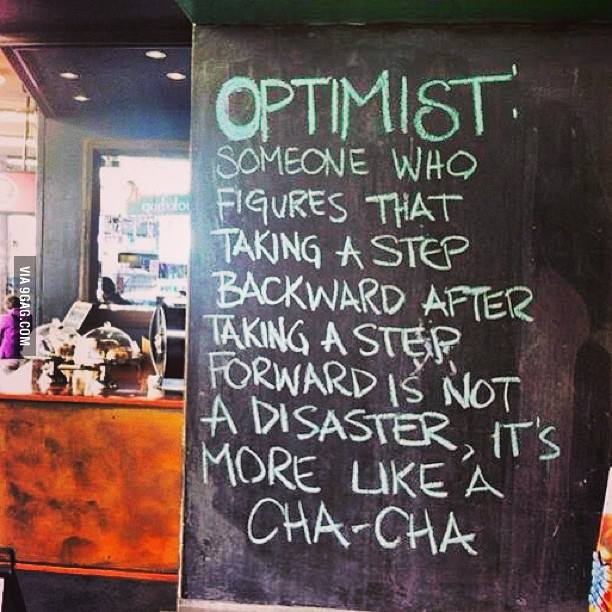 OPTIMIST:
SOMEONE WHO
FIGURES THAT
TAKING A STEP
BACKWARD AFTER
TAKING A STEP
FORWARD IS NOT
A DISASTER, IT'S
MORE LIKE A
CHA-CHA
VIA 9GAG.COM